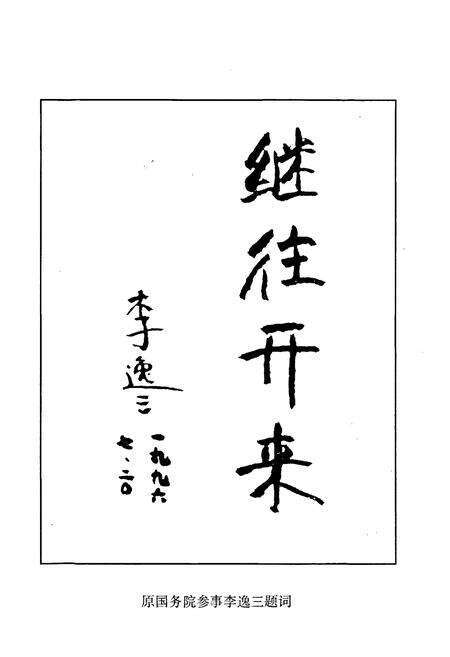 继往开来
李逸三
一九九六
七·二〇
原国务院参事李逸三题词